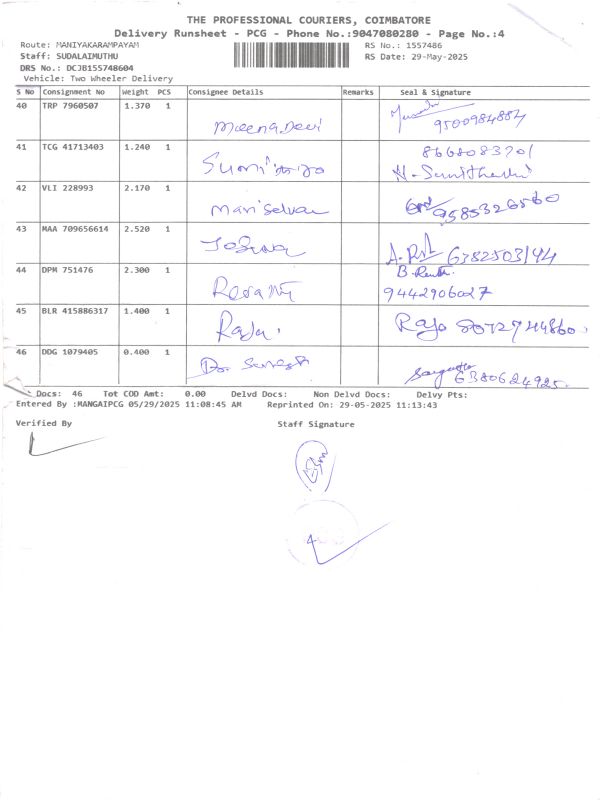 THE PROFESSIONAL COURIERS, COIMBATORE
Delivery Runsheet - PCG - Phone No.:9047080280 - Page No.:4
Route: MANIYAKARAMPAYAM RS No.: 1557486
Staff: SUDALAIMUTHU RS Date: 29-May-2025
DRS No.: DCJB155748604
Vehicle: Two Wheeler Delivery
S No Consignment No Weight PCS Consignee Details Remarks Seal & Signature
40 TRP 7960507 1.370 1
Meena Devi 9500984884
41 TCG 41713403 1.240 1
42 VLI 228993 2.170 1
Mariselvam
43 MAA 709656614 2.520 1
6382503144
44 DPM 751476 2.300 1
9442906027
45 BLR 415886317 1.400 1
Raja Raja 8072744860
46 DDG 1079405 0.400 1
Dr. Suresh 6380624925
Docs: 46 Tot COD Amt: 0.00 Delvd Docs: Non Delvd Docs: Delvy Pts:
Entered By :MANGAIPCG 05/29/2025 11:08:45 AM Reprinted On: 29-05-2025 11:13:43
Verified By Staff Signature